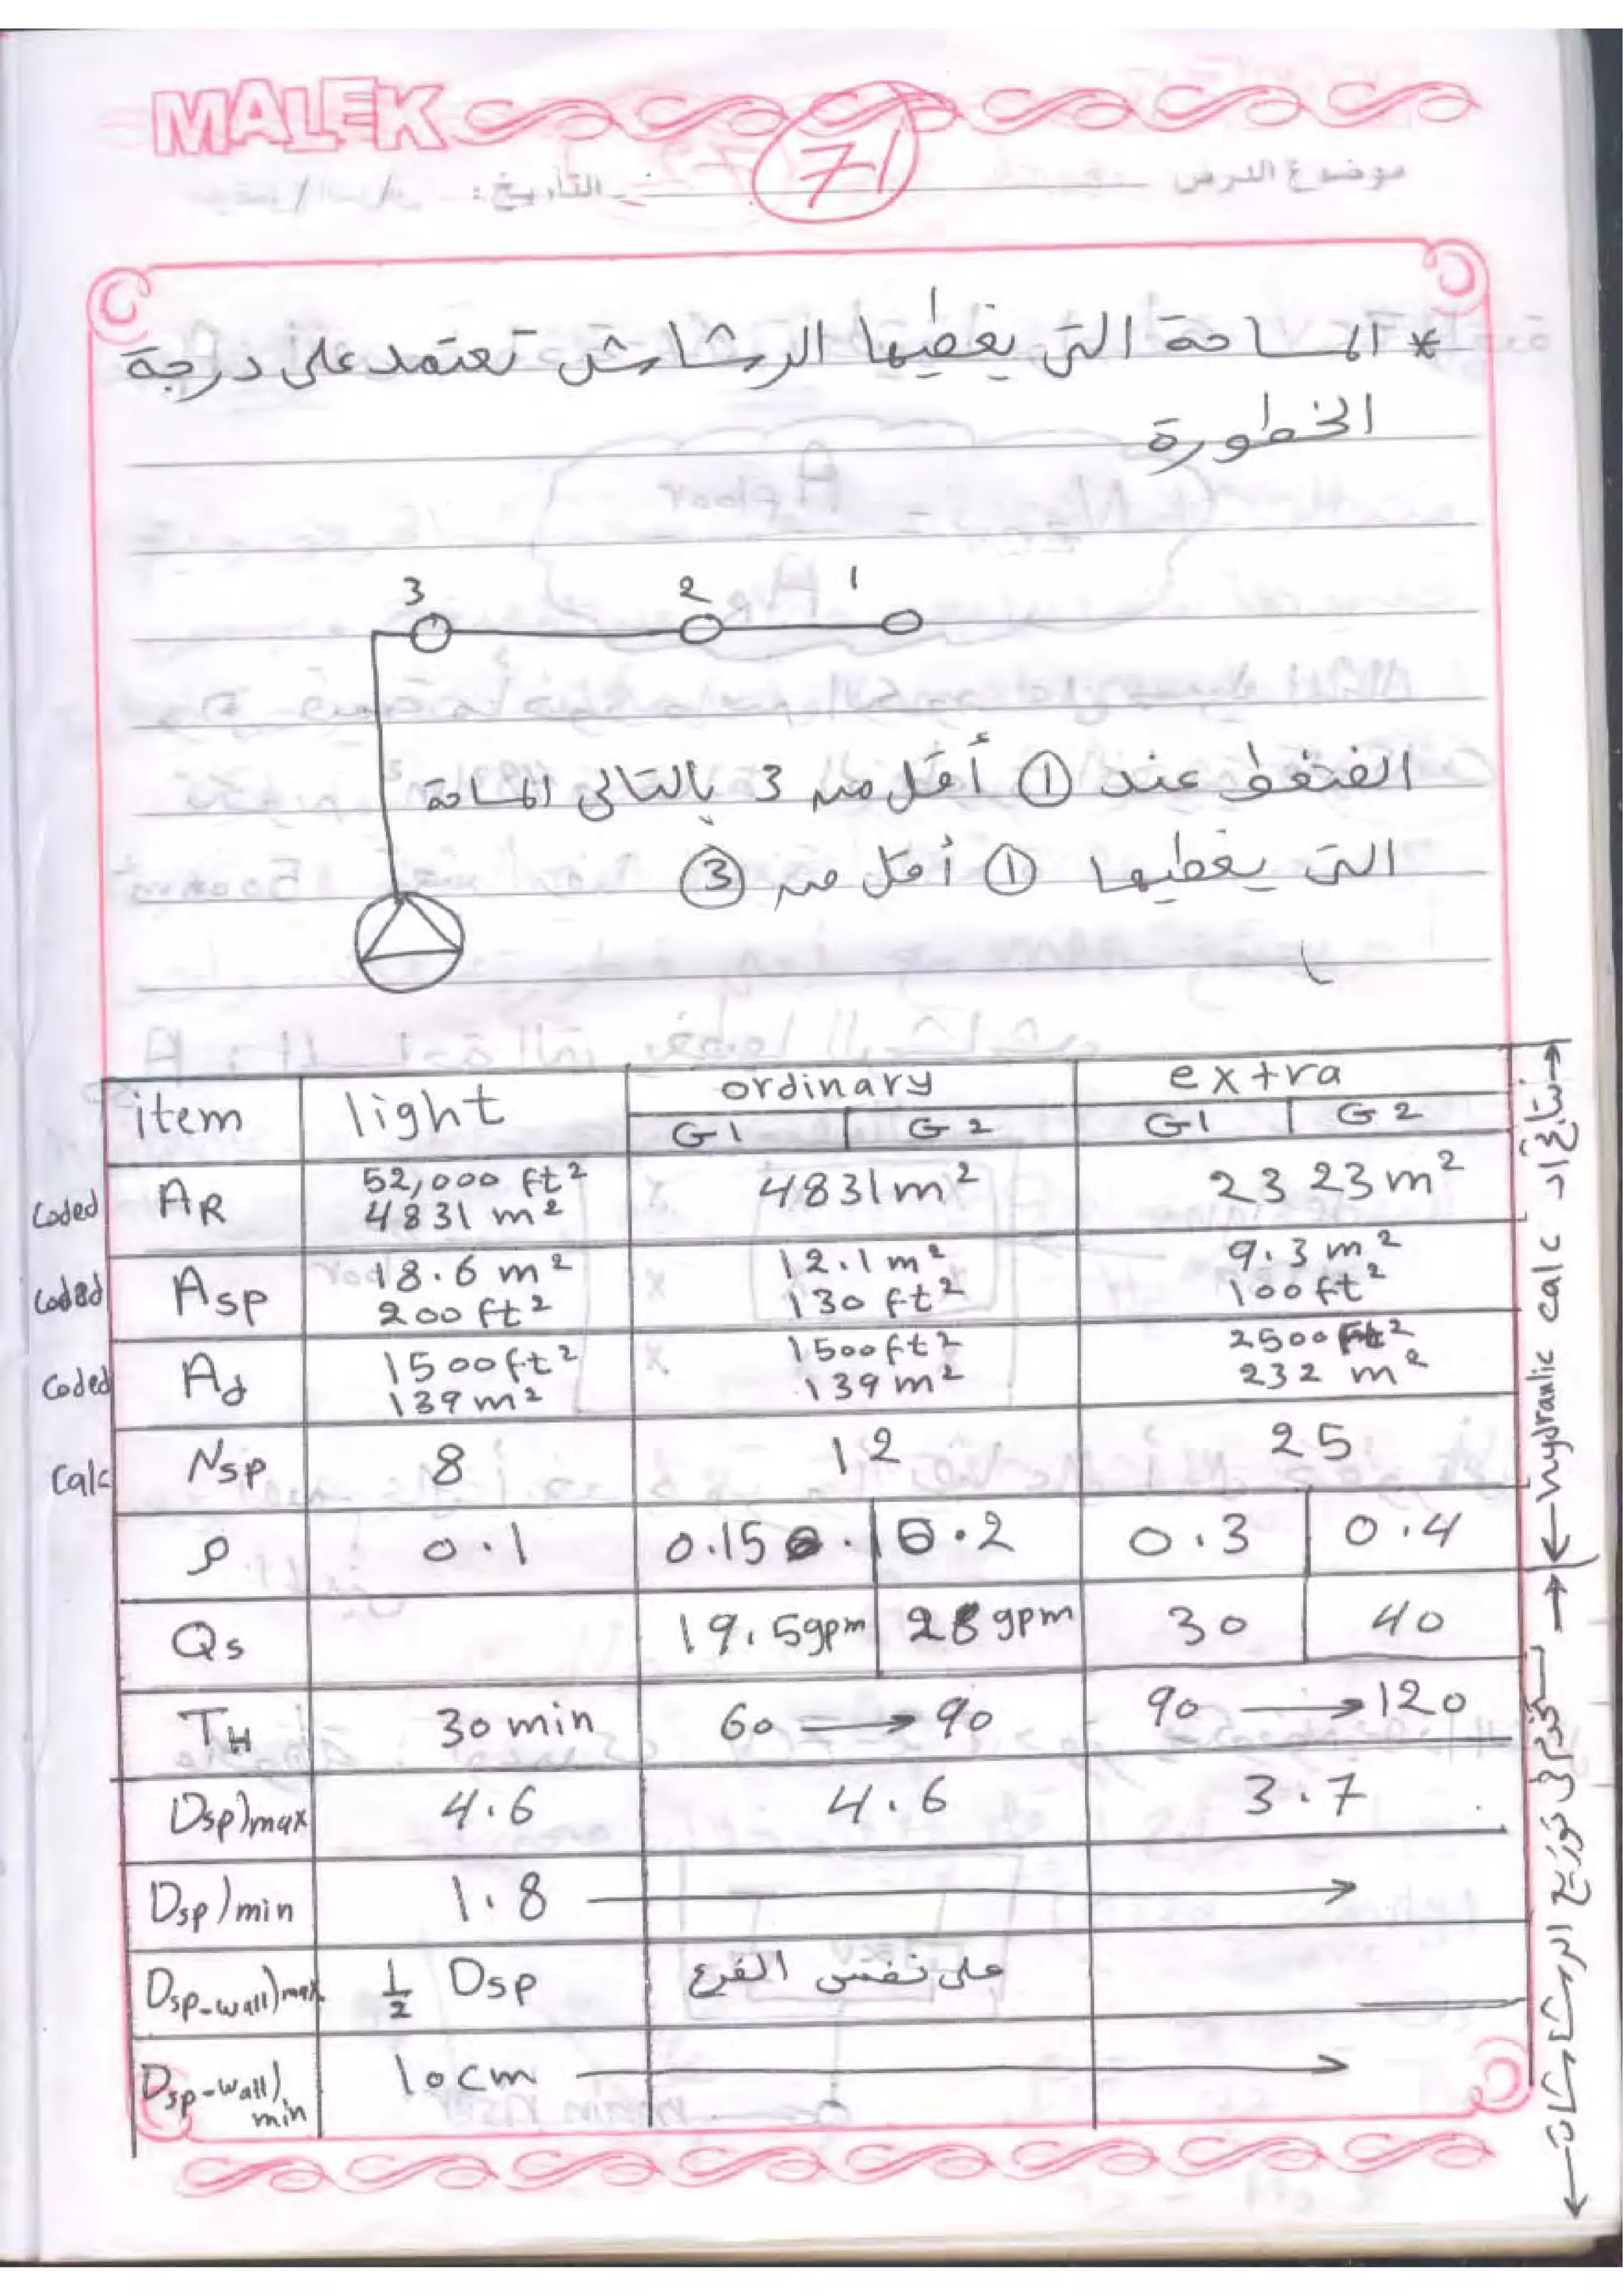 MALEK
71
موضوع الدرس
التاريخ:
* المساحة التى يغطيها الرشاش تعتمد على درجة
الخطورة
3 2 1
الضغط عند ① أقل من 3 بالتالى المساحة
التى يغطيها ① أقل من ③
item light ordinary extra
G1 G2 G1 G2
Coded AR 52,000 ft² 4831 m² 4831 m² 2323 m²
Coded Asp 18.6 m² 200 ft² 12.1 m² 130 ft² 9.3 m² 100 ft²
Coded Ad 1500 ft² 139 m² 1500 ft² 139 m² 2500 ft² 232 m²
Calc Nsp 8 12 25
ρ 0.1 0.15 0.2 0.3 0.4
Qs 19.5 gpm 28 gpm 30 40
TH 30 min 60 → 90 90 → 120
Dsp)max 4.6 4.6 3.7
Dsp)min 1.8 →
Dsp-wall)max ½ Dsp على نفس الفرع
Dsp-wall)min 10 cm →
hydraulic calc
تستخدم فى توزيع الرشاشات